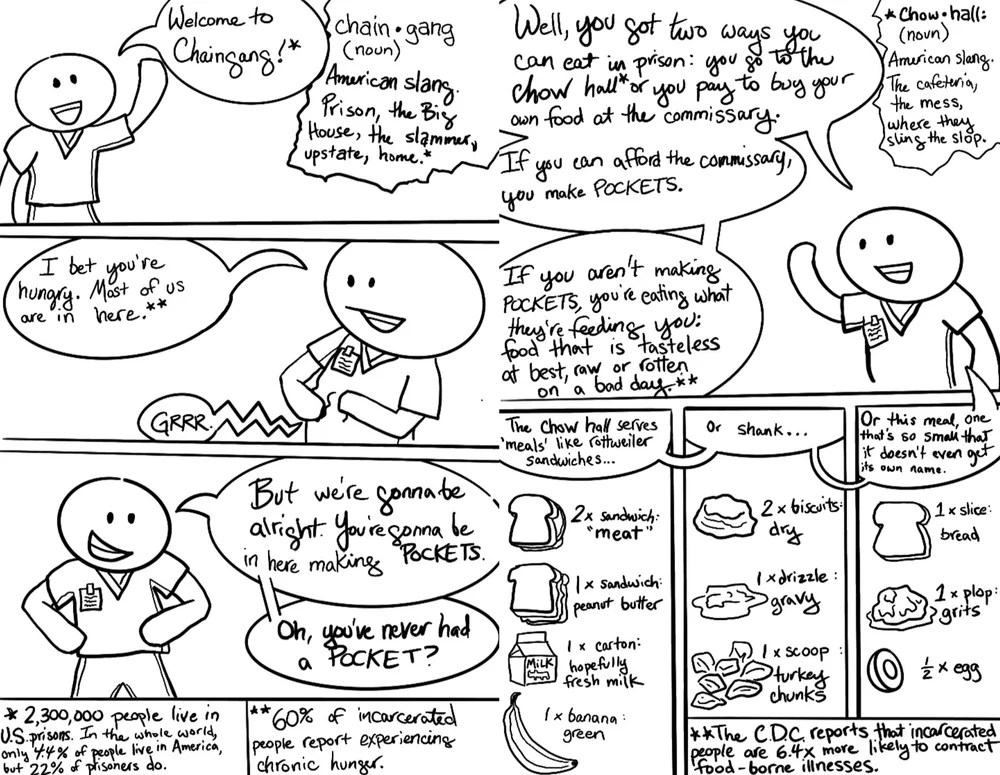 Welcome to
Chaingang!*
chain·gang
(noun)
American slang.
Prison, the Big
House, the slammer,
upstate, home.*
I bet you're
hungry. Most of us
are in here.**
GRRR.
But we're gonna be
alright. You're gonna be
in here making POCKETS.
Oh, you've never had
a POCKET?
* 2,300,000 people live in
U.S. prisons. In the whole world,
only 4.4% of people live in America,
but 22% of prisoners do.
**60% of incarcerated
people report experiencing
chronic hunger.
Well, you got two ways you
can eat in prison: you go to the
chow hall* or you pay to buy your
own food at the commissary.
*Chow·hall:
(noun)
American slang.
The cafeteria,
the mess,
where they
sling the slop.
If you can afford the commissary,
you make POCKETS.
If you aren't making
POCKETS, you're eating what
they're feeding you:
food that is tasteless
at best, raw or rotten
on a bad day.**
The chow hall serves
'meals' like rottweiler
sandwiches...
2x sandwich:
"meat"
1x sandwich:
peanut butter
MILK
1x carton:
hopefully
fresh milk
1x banana:
green
Or shank...
2x biscuits:
dry
1x drizzle:
gravy
1x scoop:
turkey
chunks
Or this meal, one
that's so small that
it doesn't even get
its own name.
1x slice:
bread
1x plop:
grits
½x egg
**The C.D.C. reports that incarcerated
people are 6.4x more likely to contract
food-borne illnesses.